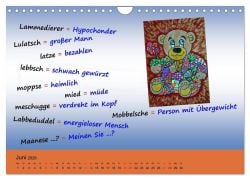 Lammedierer = Hypochonder
Lulatsch = großer Mann
latze = bezahlen
lebbsch = schwach gewürzt
moppse = heimlich
mied = müde
meschugge = verdreht im Kopf
Mobbelsche = Person mit Übergewicht
Labbeduddel = energieloser Mensch
Maanese ...? = Meinen Sie ...?
Juni